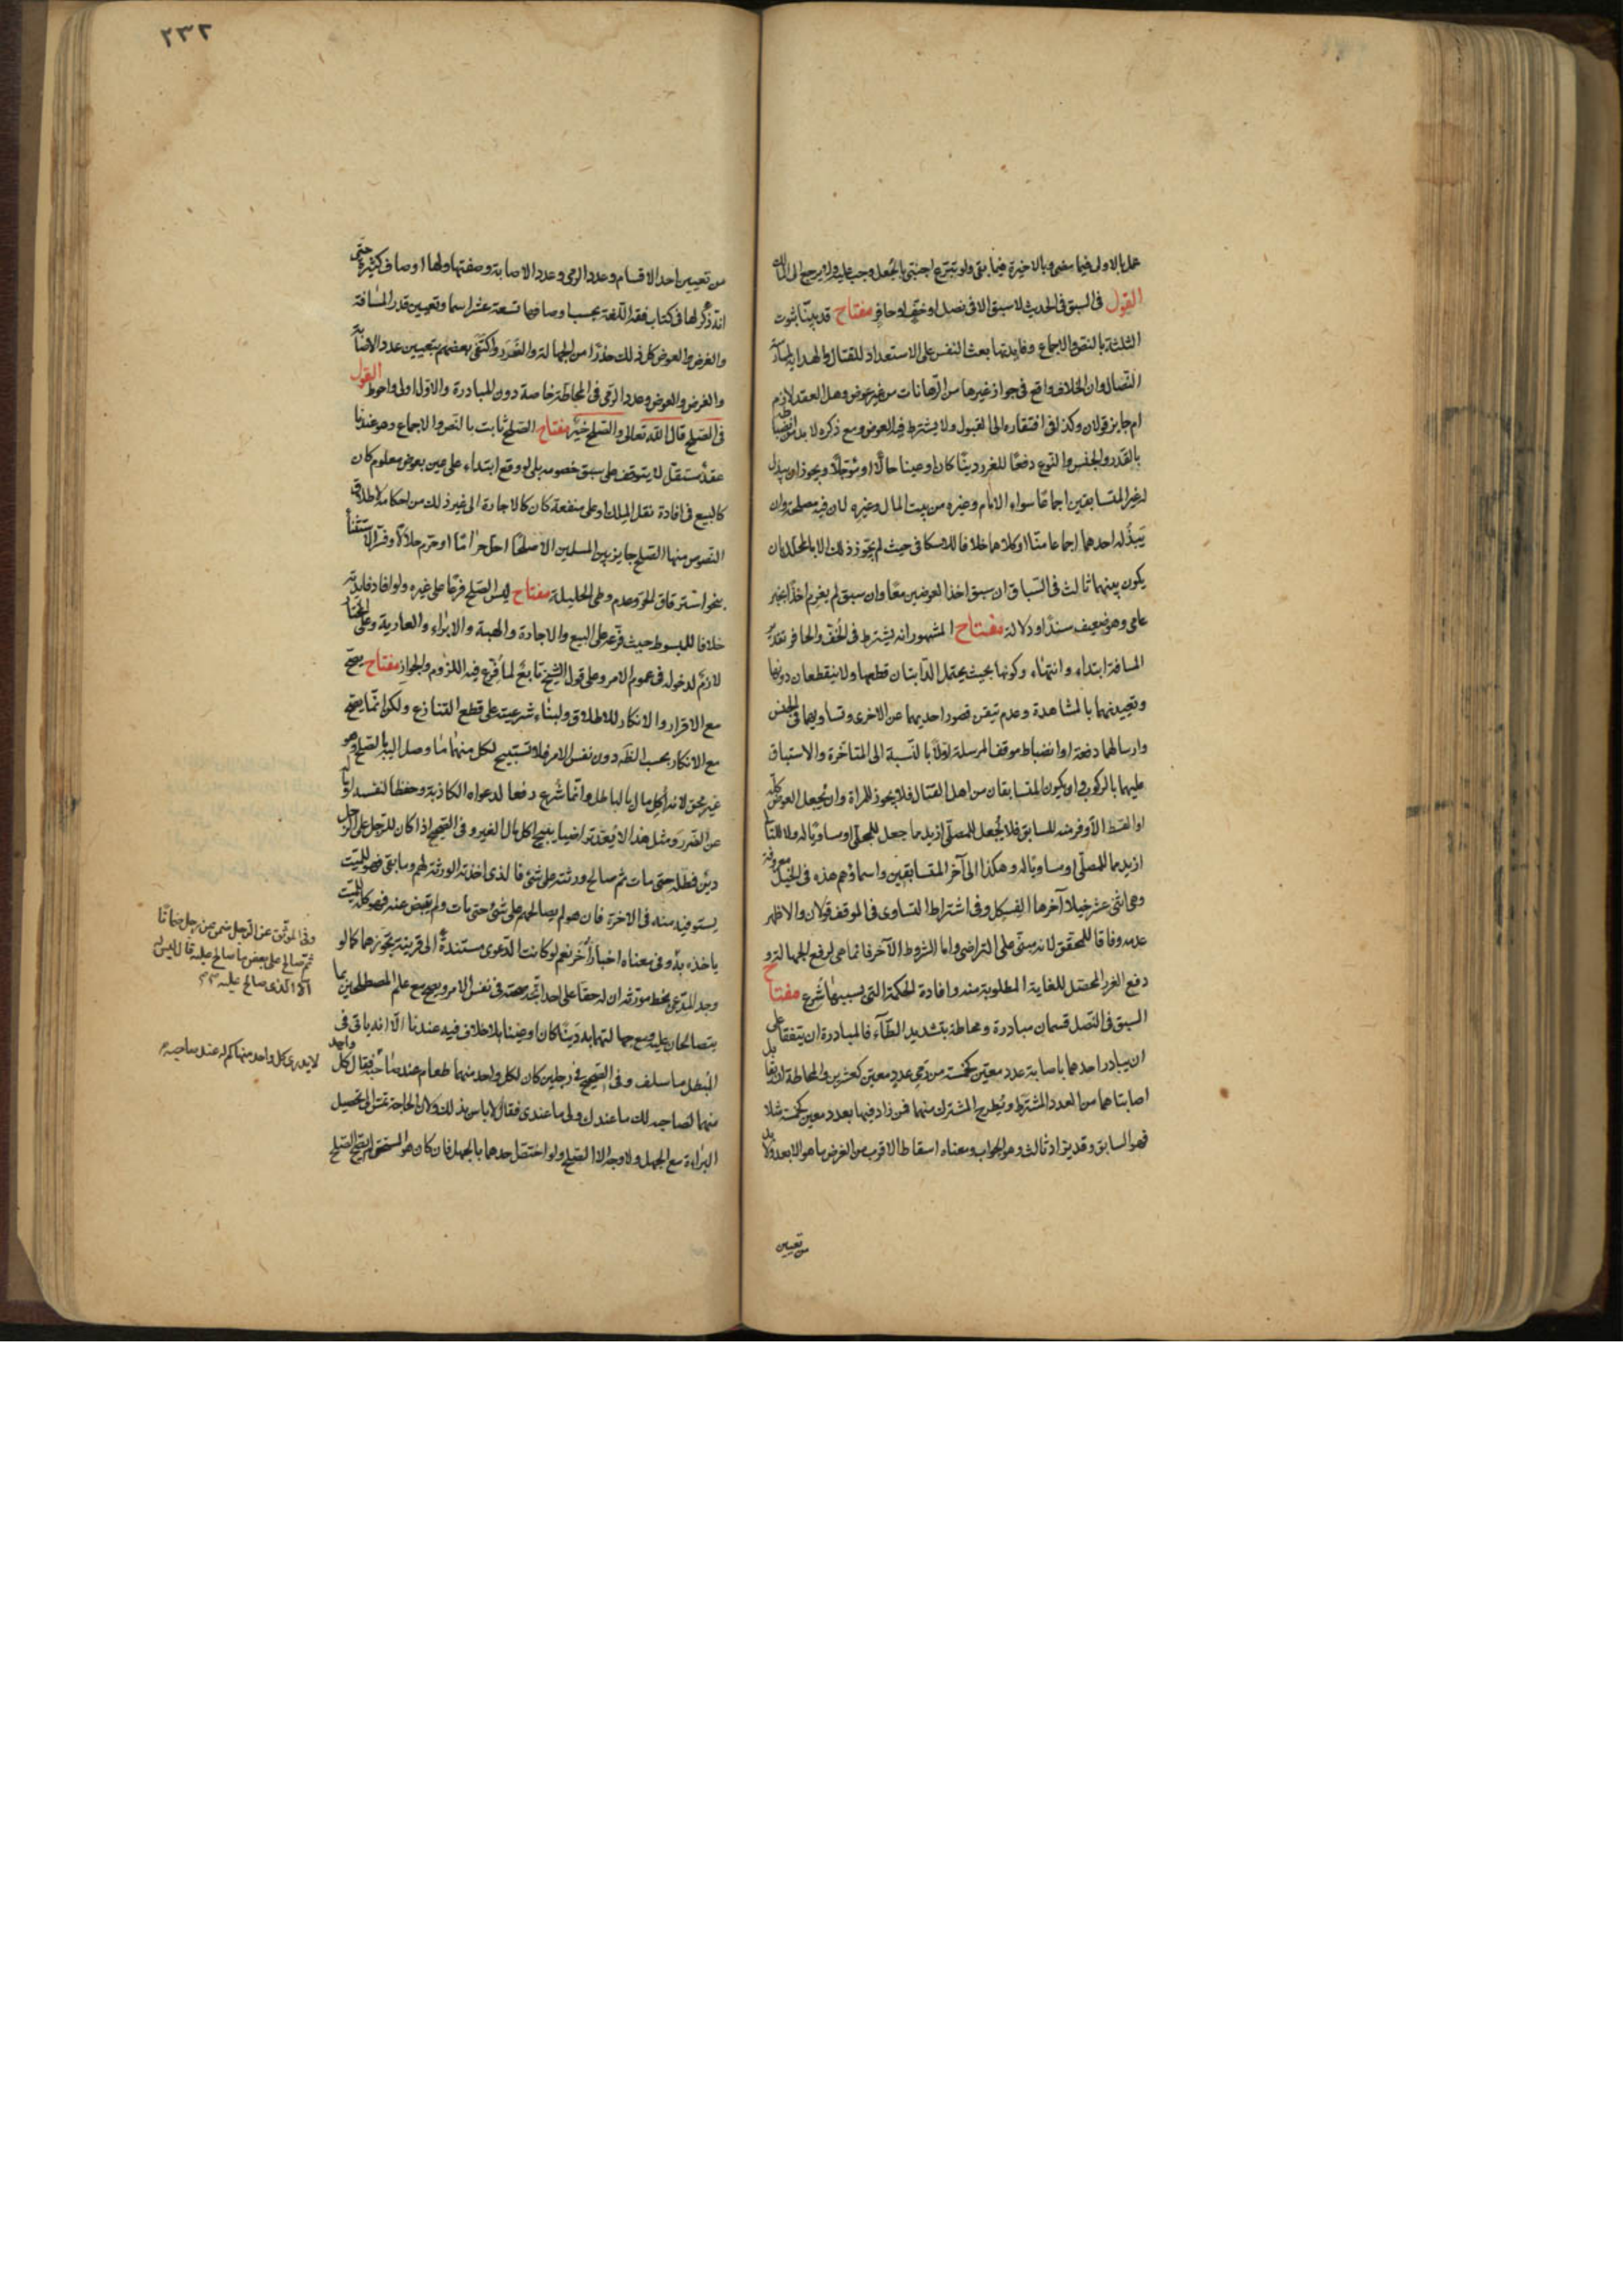 عمل بالاول فيما مضى وبالاخيرة فيما بقى ولو تبرع اجنبى بالجعل وجب عليه ولا يرجع الى المالك
القول فى السبق فى الحديث لا سبق الا فى نصل او خف او حافر مفتاح قد بينا ثبوت
الثلثة بالنص والاجماع وفايدتها بعث النفس على الاستعداد للقتال والهداية لممارسة
النضال وان الخلاف واقع فى جواز غيرها من الرهانات من غير عوض وهل العقد لازم
ام جايز قولان وكذا فى افتقاره الى القبول ولا يشترط فيه العوض ومع ذكره لا بد من ضبطه
بالقدر والجنس والنوع دفعا للغرر دينا كان او عينا حالا او مؤجلا ويجوز ان يبذل
لغير المتسابقين اجماعا سواء الامام وغيره من بيت المال وغيره لان فيه مصلحة وان
يبذله احدهما اجماعا منا او كلاهما خلافا للاسكافى حيث لم يجوز ذلك الا بالمحلل بان
يكون بينهما ثالث فى السباق ان سبق اخذ العوضين معا وان سبق لم يغرم اخذا بخبر
عامى وهو ضعيف سندا ودلالة مفتاح المشهور انه يشترط فى الخف والحافر تقدير
المسافة ابتداء وانتهاء وكونها بحيث يحتمل الدابتان قطعها ولا ينقطعان دونها
وتعيينهما بالمشاهدة وعدم تيقن قصور احديهما عن الاخرى وتساويهما فى الجنس
وارسالهما دفعة او انضباط موقف المرسلة اولا بالنسبة الى المتاخرة والاستباق
عليهما بالركوب وان يكون المتسابقان من اهل القتال فلا يجوز للمراة وان يجعل العوض كله
او القسط الاوفر منه للسابق فلا يجعل للمصلى ازيد مما جعل للمجلى او مساويا له ولا للتالى
ازيد مما للمصلى او مساويا له وهكذا الى آخر المتسابقين واسماؤهم هذه فى الخيل معروفة
وهى اثنى عشر خيلا آخرها الفسكل وفى اشتراط التساوى فى الموقف قولان والاظهر
عدمه وفاقا للمحقق لانه مبنى على التراضى واما الشروط الآخر فانما هى لرفع الجهالة و
دفع الغرر المحتمل للغاية المطلوبة منه وافادة الحكمة التى بسببها شرع مفتاح
السبق فى النصل قسمان مبادرة ومحاطة بتشديد الطآء فالمبادرة ان يتفقا على
ان يبادر احدهما باصابة عدد معين كخمسة من رمى عدد معين كعشرين والمحاطة ان يقابل
اصابتاهما من العدد المشترط ويطرح المشترك منهما فمن زاد فيها بعدد معين كخمسة مثلا
فهو السابق وقد يزاد ثالث وهو الحوابى ومعناه اسقاط الاقرب من الغرض ما هو الابعد ولا بد
من تعيين
٢٣٢
من تعيين احد الاقسام وعدد الرمى وعدد الاصابة وصفتها ولها اوصاف كثيرة حتى
انه ذكر لها فى كتاب فقه اللغة بحسب اوصافها تسعة عشر اسما وتعيين قدر المسافة
والغرض والعوض كل ذلك حذرا من الجهالة والغرر واكتفى بعضهم بتعيين عدد الاصابة
والغرض والعوض وعدد الرمى فى المحاطة خاصة دون المبادرة والاول اولى واحوط القول
فى الصلح قال الله تعالى والصلح خير مفتاح الصلح ثابت بالنص والاجماع وهو عندنا
عقد مستقل لا يتوقف على سبق خصومة بل لو وقع ابتداء على عين بعوض معلوم كان
كالبيع فى افادة نقل الملك او على منفعة كان كالاجارة الى غير ذلك من احكامه لاطلاق
النصوص منها الصلح جايز بين المسلمين الا صلحا احل حراما او حرم حلالا وفسر الاستثناء
بنحو استرقاق الحر وعدم وطى الحليلة مفتاح ليس الصلح فرعا على غيره ولو افاد فايدته
خلافا للمبسوط حيث فرعه على البيع والاجارة والهبة والابراء والعارية وعلى المختار
لازم لدخوله فى عموم الامر وعلى قول الشيخ تابع لما فرع فيه اللزوم والجواز مفتاح يصح
مع الاقرار والانكار للاطلاق ولبناء شرعيته على قطع التنازع ولكن انما يصح
مع الانكار بحسب الظهر دون نفس الامر فلا تستبيح لكل منهما ما وصل اليه بالصلح وهو
غير محق لانه اكل مال بالباطل وانما شرع دفعا لدعواه الكاذبة وحفظا لنفسه او ماله
عن الضرر ومثل هذا لا يعد تراضيا يبيح اكل مال الغير وفى الصحيح اذا كان للرجل على الرجل
دين فمطله حتى مات ثم صالح ورثته على شئ فالذى اخذته الورثة لهم وما بقى فهو للميت
يستوفيه منه فى الاخرة فان هو لم يصالحهم على شئ حتى مات ولم يقبض عنه فهو كله للميت
ياخذه به وفى معناه اخبار أخر نعم لو كانت الدعوى مستندة الى قرينة تجوزهما كما لو
وجد المدعى بخط مورثه ان له حقا على احد اتجه صحته فى نفس الامر ويصح مع علم المصطلحين بما
يتصالحان عليه ومع جهالتهما به دينا كان او عينا بلا خلاف فيه عندنا الا انه ياتى فى
المبطل ما سلف وفى الصحيح فى رجلين كان لكل واحد منهما طعام عند صاحبه فقال كل واحد
منهما لصاحبه لك ما عندك ولى ما عندى فقال لا باس بذلك ولان الحاجة تمس الى تحصيل
البراءة مع الجهل ولا وجه الا الصلح ولو اختص احدهما بالجهل فان كان هو المستحق لم يصح الصلح
وفى الموثق عن الرجل ضمن عن رجل ضمانا
ثم صالح على بعض ما صالح عليه قال ليس له
الا الذى صالح عليه
لا يدرى كل واحد منهما كم له عند صاحبه